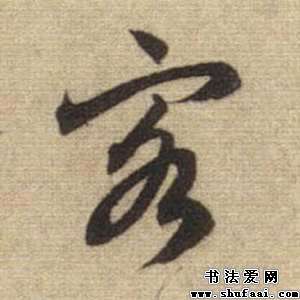 客
书法爱网
www.shufaai.com